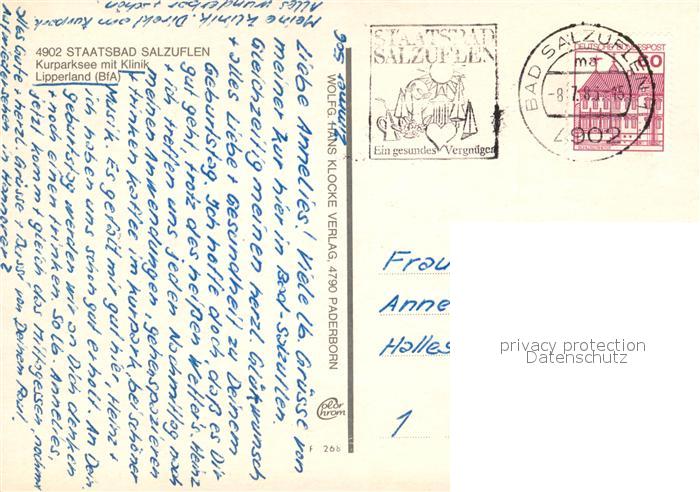 Meine Klinik. Direkt am Kurpark
Alles wunderbar + schön
4902 STAATSBAD SALZUFLEN
Kurparksee mit Klinik
Lipperland (BfA)
Zimmer 305
Liebe Annelies! Viele lb. Grüsse von
meiner Kur hier in Bad-Salzuflen.
Gleichzeitig meinen herzl. Glückwunsch
+ alles Liebe + Gesundheit zu Deinem
Geburtstag. Ich hoffe doch, daß es Dir
gut geht, trotz des heißen Wetter's. Heinz
+ ich treffen uns jeden Nachmittag nach
meinen Anwendungen, gehen spazieren
+ trinken Kaffee im Kurpark, bei schöner
Musik. Es gefällt mir gut hier, Heinz +
ich haben uns schon gut erholt. An Dein
Geburtstag werden wir an Dich denken
+ noch einen trinken. So lb. Annelies,
jetzt kommt gleich das Mittagessen, nochmal
alles Gute + herzl. Grüsse + Deinem Paul
Auf Wiedersehen in Hannover 2
WOLFG. HANS KLOCKE VERLAG, 4790 PADERBORN
Color
Chrom
F 268
STAATSBAD
SALZUFLEN
Ein gesundes Vergnügen
BAD SALZUFLEN 1
ma
-8.7.8
-15
4902
DEUTSCHE BUNDESPOST
60
Frau
Anne
Halles
1
privacy protection
Datenschutz